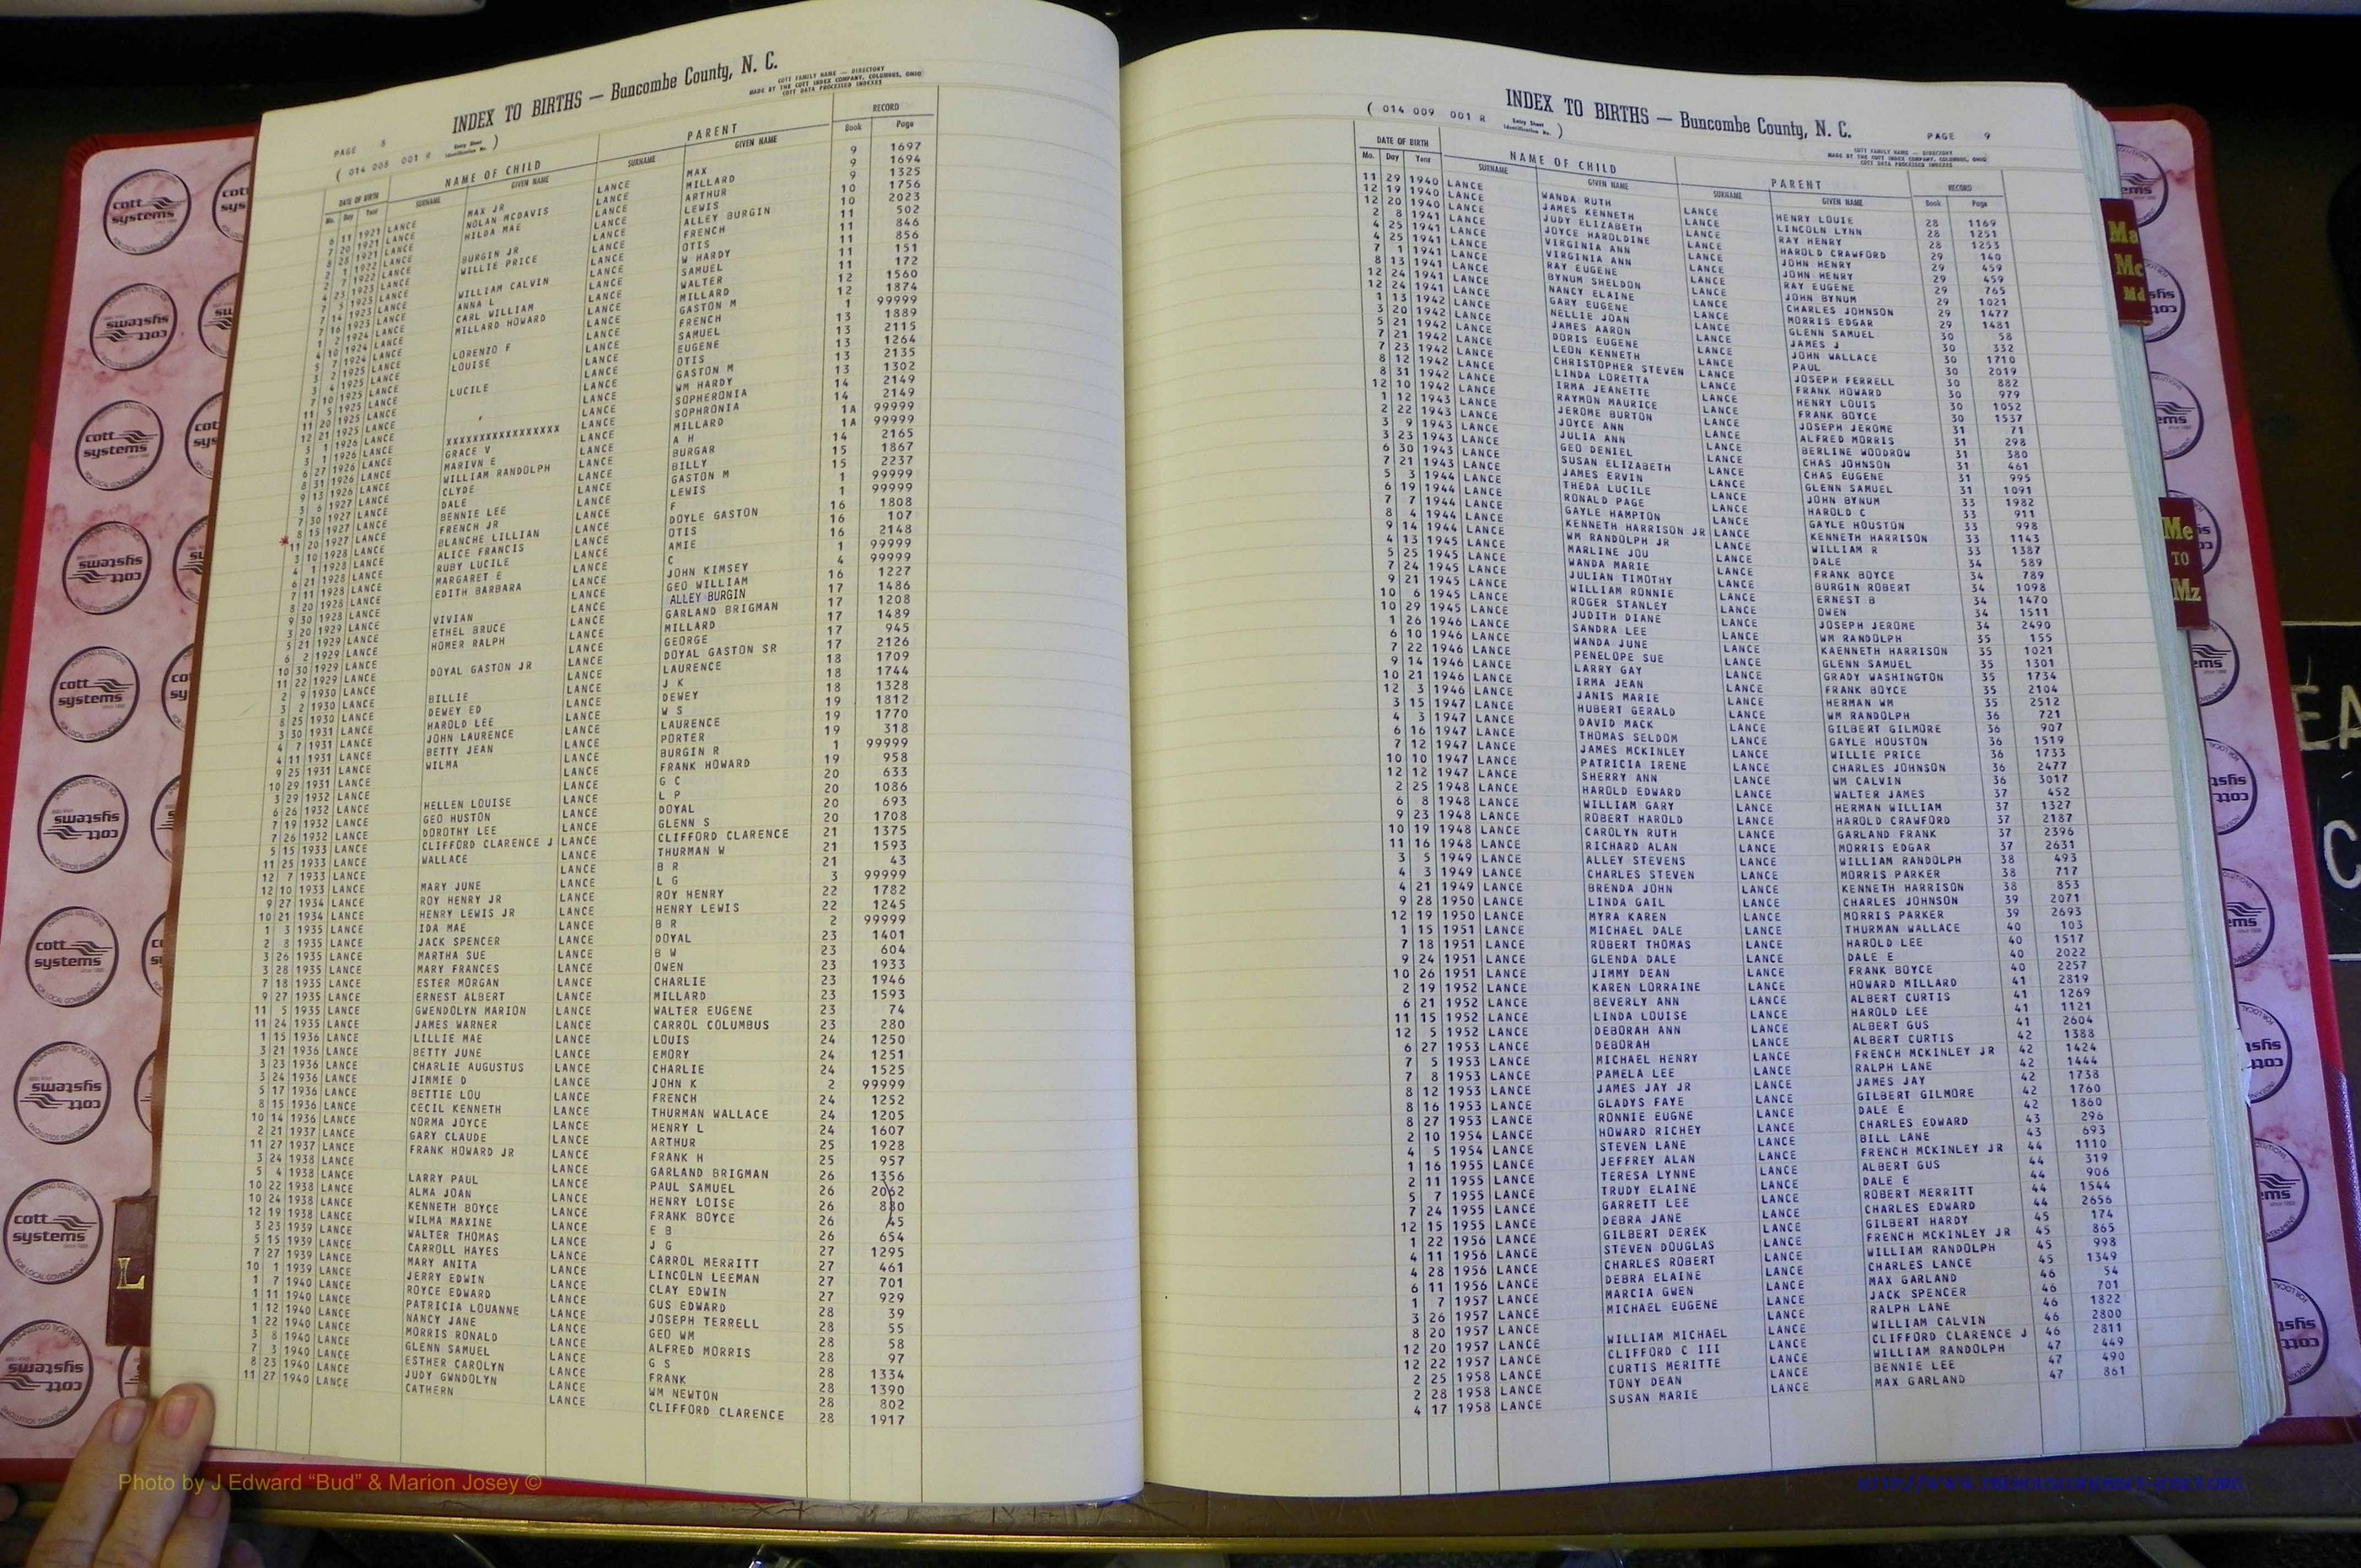 INDEX TO BIRTHS — Buncombe County, N. C.
COTT FAMILY NAME — DIRECTORY
MADE BY THE COTT INDEX COMPANY, COLUMBUS, OHIO
COTT DATA PROCESSED INDEXES
PAGE 8
( 014 008 001 R Entry Sheet Identification No. )
DATE OF BIRTH NAME OF CHILD PARENT RECORD
Mo. Day Year SURNAME GIVEN NAME SURNAME GIVEN NAME Book Page
6 11 1921 LANCE MAX JR LANCE MAX 9 1697
7 20 1921 LANCE NOLAN MCDAVIS LANCE MILLARD 9 1694
8 28 1921 LANCE HILDA MAE LANCE ARTHUR 9 1325
2 1 1922 LANCE LANCE LEWIS 10 1756
2 7 1922 LANCE BURGIN JR LANCE ALLEY BURGIN 10 2023
4 23 1923 LANCE WILLIE PRICE LANCE FRENCH 11 502
7 5 1923 LANCE LANCE OTIS 11 846
7 14 1923 LANCE WILLIAM CALVIN LANCE W HARDY 11 856
7 16 1923 LANCE ANNA L LANCE SAMUEL 11 151
1 2 1924 LANCE CARL WILLIAM LANCE WALTER 11 172
4 10 1924 LANCE MILLARD HOWARD LANCE MILLARD 12 1560
5 7 1924 LANCE LANCE GASTON M 12 1874
3 2 1925 LANCE LORENZO F LANCE FRENCH 1 99999
3 4 1925 LANCE LOUISE LANCE SAMUEL 13 1889
7 10 1925 LANCE LANCE EUGENE 13 2115
11 5 1925 LANCE LUCILE LANCE OTIS 13 1264
11 20 1925 LANCE LANCE GASTON M 13 2135
12 21 1925 LANCE LANCE WM HARDY 13 1302
3 1 1926 LANCE LANCE SOPHERONIA 14 2149
3 1 1926 LANCE XXXXXXXXXXXXXXXXX LANCE SOPHRONIA 14 2149
6 27 1926 LANCE GRACE V LANCE MILLARD 1A 99999
8 31 1926 LANCE MARIVN E LANCE A H 1A 99999
9 13 1926 LANCE WILLIAM RANDOLPH LANCE BURGAR 14 2165
3 6 1927 LANCE CLYDE LANCE BILLY 15 1867
7 30 1927 LANCE DALE LANCE GASTON M 15 2237
8 15 1927 LANCE BENNIE LEE LANCE LEWIS 1 99999
* 11 20 1927 LANCE FRENCH JR LANCE F 1 99999
3 10 1928 LANCE BLANCHE LILLIAN LANCE DOYLE GASTON 16 1808
4 1 1928 LANCE ALICE FRANCIS LANCE OTIS 16 107
6 21 1928 LANCE RUBY LUCILE LANCE AMIE 16 2148
7 11 1928 LANCE MARGARET E LANCE C 1 99999
8 20 1928 LANCE EDITH BARBARA LANCE JOHN KIMSEY 4 99999
9 30 1928 LANCE LANCE GEO WILLIAM 16 1227
3 20 1929 LANCE VIVIAN LANCE ALLEY BURGIN 17 1486
5 21 1929 LANCE ETHEL BRUCE LANCE GARLAND BRIGMAN 17 1208
6 2 1929 LANCE HOMER RALPH LANCE MILLARD 17 1489
10 30 1929 LANCE LANCE GEORGE 17 945
11 22 1929 LANCE DOYAL GASTON JR LANCE DOYAL GASTON SR 17 2126
2 9 1930 LANCE LANCE LAURENCE 18 1709
3 2 1930 LANCE BILLIE LANCE J K 18 1744
8 25 1930 LANCE DEWEY ED LANCE DEWEY 18 1328
3 30 1931 LANCE HAROLD LEE LANCE W S 19 1812
4 7 1931 LANCE JOHN LAURENCE LANCE LAURENCE 19 1770
4 11 1931 LANCE BETTY JEAN LANCE PORTER 19 318
9 25 1931 LANCE WILMA LANCE BURGIN R 1 99999
10 29 1931 LANCE LANCE FRANK HOWARD 19 958
3 29 1932 LANCE LANCE G C 20 633
6 26 1932 LANCE HELLEN LOUISE LANCE L P 20 1086
7 19 1932 LANCE GEO HUSTON LANCE DOYAL 20 693
7 26 1932 LANCE DOROTHY LEE LANCE GLENN S 20 1708
5 15 1933 LANCE CLIFFORD CLARENCE J LANCE CLIFFORD CLARENCE 21 1375
11 25 1933 LANCE WALLACE LANCE THURMAN W 21 1593
12 7 1933 LANCE LANCE B R 21 43
12 10 1933 LANCE MARY JUNE LANCE L G 3 99999
9 27 1934 LANCE ROY HENRY JR LANCE ROY HENRY 22 1782
10 21 1934 LANCE HENRY LEWIS JR LANCE HENRY LEWIS 22 1245
1 3 1935 LANCE IDA MAE LANCE B R 2 99999
2 8 1935 LANCE JACK SPENCER LANCE DOYAL 23 1401
3 26 1935 LANCE MARTHA SUE LANCE B W 23 604
3 28 1935 LANCE MARY FRANCES LANCE OWEN 23 1933
7 18 1935 LANCE ESTER MORGAN LANCE CHARLIE 23 1946
9 27 1935 LANCE ERNEST ALBERT LANCE MILLARD 23 1593
11 5 1935 LANCE GWENDOLYN MARION LANCE WALTER EUGENE 23 74
11 24 1935 LANCE JAMES WARNER LANCE CARROL COLUMBUS 23 280
1 15 1936 LANCE LILLIE MAE LANCE LOUIS 24 1250
3 21 1936 LANCE BETTY JUNE LANCE EMORY 24 1251
3 23 1936 LANCE CHARLIE AUGUSTUS LANCE CHARLIE 24 1525
3 24 1936 LANCE JIMMIE D LANCE JOHN K 2 99999
5 17 1936 LANCE BETTIE LOU LANCE FRENCH 24 1252
8 15 1936 LANCE CECIL KENNETH LANCE THURMAN WALLACE 24 1205
10 14 1936 LANCE NORMA JOYCE LANCE HENRY L 24 1607
2 21 1937 LANCE GARY CLAUDE LANCE ARTHUR 25 1928
11 27 1937 LANCE FRANK HOWARD JR LANCE FRANK H 25 957
3 24 1938 LANCE LANCE GARLAND BRIGMAN 26 1356
5 4 1938 LANCE LARRY PAUL LANCE PAUL SAMUEL 26 2062
10 22 1938 LANCE ALMA JOAN LANCE HENRY LOISE 26 880
10 24 1938 LANCE KENNETH BOYCE LANCE FRANK BOYCE 26 45
12 19 1938 LANCE WILMA MAXINE LANCE E B 26 654
3 23 1939 LANCE WALTER THOMAS LANCE J G 27 1295
5 15 1939 LANCE CARROLL HAYES LANCE CARROL MERRITT 27 461
7 27 1939 LANCE MARY ANITA LANCE LINCOLN LEEMAN 27 701
10 1 1939 LANCE JERRY EDWIN LANCE CLAY EDWIN 27 929
1 7 1940 LANCE ROYCE EDWARD LANCE GUS EDWARD 28 39
1 11 1940 LANCE PATRICIA LOUANNE LANCE JOSEPH TERRELL 28 55
1 12 1940 LANCE NANCY JANE LANCE GEO WM 28 58
1 22 1940 LANCE MORRIS RONALD LANCE ALFRED MORRIS 28 97
3 8 1940 LANCE GLENN SAMUEL LANCE G S 28 1334
7 3 1940 LANCE ESTHER CAROLYN LANCE FRANK 28 1390
8 23 1940 LANCE JUDY GWNDOLYN LANCE WM NEWTON 28 802
11 27 1940 LANCE CATHERN LANCE CLIFFORD CLARENCE 28 1917
INDEX TO BIRTHS — Buncombe County, N. C.
( 014 009 001 R Entry Sheet Identification No. )
PAGE 9
COTT FAMILY NAME — DIRECTORY
MADE BY THE COTT INDEX COMPANY, COLUMBUS, OHIO
COTT DATA PROCESSED INDEXES
DATE OF BIRTH NAME OF CHILD PARENT RECORD
Mo. Day Year SURNAME GIVEN NAME SURNAME GIVEN NAME Book Page
11 29 1940 LANCE WANDA RUTH LANCE HENRY LOUIE 28 1169
12 19 1940 LANCE JAMES KENNETH LANCE LINCOLN LYNN 28 1251
12 20 1940 LANCE JUDY ELIZABETH LANCE RAY HENRY 28 1253
2 8 1941 LANCE JOYCE HAROLDINE LANCE HAROLD CRAWFORD 29 140
4 25 1941 LANCE VIRGINIA ANN LANCE JOHN HENRY 29 459
4 25 1941 LANCE VIRGINIA ANN LANCE JOHN HENRY 29 459
7 1 1941 LANCE RAY EUGENE LANCE RAY EUGENE 29 765
8 13 1941 LANCE BYNUM SHELDON LANCE JOHN BYNUM 29 1021
12 24 1941 LANCE NANCY ELAINE LANCE CHARLES JOHNSON 29 1477
12 24 1941 LANCE GARY EUGENE LANCE MORRIS EDGAR 29 1481
1 13 1942 LANCE NELLIE JOAN LANCE GLENN SAMUEL 30 58
3 20 1942 LANCE JAMES AARON LANCE JAMES J 30 332
5 21 1942 LANCE DORIS EUGENE LANCE JOHN WALLACE 30 1710
7 21 1942 LANCE LEON KENNETH LANCE PAUL 30 2019
7 23 1942 LANCE CHRISTOPHER STEVEN LANCE JOSEPH FERRELL 30 882
8 12 1942 LANCE LINDA LORETTA LANCE FRANK HOWARD 30 979
8 31 1942 LANCE IRMA JEANETTE LANCE HENRY LOUIS 30 1052
12 10 1942 LANCE RAYMON MAURICE LANCE FRANK BOYCE 30 1537
1 12 1943 LANCE JEROME BURTON LANCE JOSEPH JEROME 31 71
2 22 1943 LANCE JOYCE ANN LANCE ALFRED MORRIS 31 298
3 9 1943 LANCE JULIA ANN LANCE BERLINE WOODROW 31 380
3 23 1943 LANCE GEO DENIEL LANCE CHAS JOHNSON 31 461
6 30 1943 LANCE SUSAN ELIZABETH LANCE CHAS EUGENE 31 995
7 21 1943 LANCE JAMES ERVIN LANCE GLENN SAMUEL 31 1091
5 3 1944 LANCE THEDA LUCILE LANCE JOHN BYNUM 33 1982
6 19 1944 LANCE RONALD PAGE LANCE HAROLD C 33 911
7 7 1944 LANCE GAYLE HAMPTON LANCE GAYLE HOUSTON 33 998
8 4 1944 LANCE KENNETH HARRISON JR LANCE KENNETH HARRISON 33 1143
9 14 1944 LANCE WM RANDOLPH JR LANCE WILLIAM R 33 1387
4 13 1945 LANCE MARLINE JOU LANCE DALE 34 589
5 25 1945 LANCE WANDA MARIE LANCE FRANK BOYCE 34 789
7 24 1945 LANCE JULIAN TIMOTHY LANCE BURGIN ROBERT 34 1098
9 21 1945 LANCE WILLIAM RONNIE LANCE ERNEST B 34 1470
10 6 1945 LANCE ROGER STANLEY LANCE OWEN 34 1511
10 29 1945 LANCE JUDITH DIANE LANCE JOSEPH JEROME 34 2490
1 26 1946 LANCE SANDRA LEE LANCE WM RANDOLPH 35 155
6 10 1946 LANCE WANDA JUNE LANCE KAENNETH HARRISON 35 1021
7 22 1946 LANCE PENELOPE SUE LANCE GLENN SAMUEL 35 1301
9 14 1946 LANCE LARRY GAY LANCE GRADY WASHINGTON 35 1734
10 21 1946 LANCE IRMA JEAN LANCE FRANK BOYCE 35 2104
12 3 1946 LANCE JANIS MARIE LANCE HERMAN WM 35 2512
3 15 1947 LANCE HUBERT GERALD LANCE WM RANDOLPH 36 721
4 3 1947 LANCE DAVID MACK LANCE GILBERT GILMORE 36 907
6 16 1947 LANCE THOMAS SELDOM LANCE GAYLE HOUSTON 36 1519
7 12 1947 LANCE JAMES MCKINLEY LANCE WILLIE PRICE 36 1733
10 10 1947 LANCE PATRICIA IRENE LANCE CHARLES JOHNSON 36 2477
12 12 1947 LANCE SHERRY ANN LANCE WM CALVIN 36 3017
2 25 1948 LANCE HAROLD EDWARD LANCE WALTER JAMES 37 452
6 8 1948 LANCE WILLIAM GARY LANCE HERMAN WILLIAM 37 1327
9 23 1948 LANCE ROBERT HAROLD LANCE HAROLD CRAWFORD 37 2187
10 19 1948 LANCE CAROLYN RUTH LANCE GARLAND FRANK 37 2396
11 16 1948 LANCE RICHARD ALAN LANCE MORRIS EDGAR 37 2631
3 5 1949 LANCE ALLEY STEVENS LANCE WILLIAM RANDOLPH 38 493
4 3 1949 LANCE CHARLES STEVEN LANCE MORRIS PARKER 38 717
4 21 1949 LANCE BRENDA JOHN LANCE KENNETH HARRISON 38 853
9 28 1950 LANCE LINDA GAIL LANCE CHARLES JOHNSON 39 2071
12 19 1950 LANCE MYRA KAREN LANCE MORRIS PARKER 39 2693
1 15 1951 LANCE MICHAEL DALE LANCE THURMAN WALLACE 40 103
7 18 1951 LANCE ROBERT THOMAS LANCE HAROLD LEE 40 1517
9 24 1951 LANCE GLENDA DALE LANCE DALE E 40 2022
10 26 1951 LANCE JIMMY DEAN LANCE FRANK BOYCE 40 2257
2 19 1952 LANCE KAREN LORRAINE LANCE HOWARD MILLARD 41 2819
6 21 1952 LANCE BEVERLY ANN LANCE ALBERT CURTIS 41 1269
11 15 1952 LANCE LINDA LOUISE LANCE HAROLD LEE 41 1121
12 5 1952 LANCE DEBORAH ANN LANCE ALBERT GUS 41 2604
6 27 1953 LANCE DEBORAH LANCE ALBERT CURTIS 42 1388
7 5 1953 LANCE MICHAEL HENRY LANCE FRENCH MCKINLEY JR 42 1424
7 8 1953 LANCE PAMELA LEE LANCE RALPH LANE 42 1444
8 12 1953 LANCE JAMES JAY JR LANCE JAMES JAY 42 1738
8 16 1953 LANCE GLADYS FAYE LANCE GILBERT GILMORE 42 1760
8 27 1953 LANCE RONNIE EUGNE LANCE DALE E 42 1860
2 10 1954 LANCE HOWARD RICHEY LANCE CHARLES EDWARD 43 296
4 5 1954 LANCE STEVEN LANE LANCE BILL LANE 43 693
1 16 1955 LANCE JEFFREY ALAN LANCE FRENCH MCKINLEY JR 44 1110
2 11 1955 LANCE TERESA LYNNE LANCE ALBERT GUS 44 319
5 7 1955 LANCE TRUDY ELAINE LANCE DALE E 44 906
7 24 1955 LANCE GARRETT LEE LANCE ROBERT MERRITT 44 1544
12 15 1955 LANCE DEBRA JANE LANCE CHARLES EDWARD 44 2656
1 22 1956 LANCE GILBERT DEREK LANCE GILBERT HARDY 45 174
4 11 1956 LANCE STEVEN DOUGLAS LANCE FRENCH MCKINLEY JR 45 865
4 28 1956 LANCE CHARLES ROBERT LANCE WILLIAM RANDOLPH 45 998
6 11 1956 LANCE DEBRA ELAINE LANCE CHARLES LANCE 45 1349
1 7 1957 LANCE MARCIA GWEN LANCE MAX GARLAND 46 54
3 26 1957 LANCE MICHAEL EUGENE LANCE JACK SPENCER 46 701
8 20 1957 LANCE LANCE RALPH LANE 46 1822
12 20 1957 LANCE WILLIAM MICHAEL LANCE WILLIAM CALVIN 46 2800
12 22 1957 LANCE CLIFFORD C III LANCE CLIFFORD CLARENCE J 46 2811
2 25 1958 LANCE CURTIS MERITTE LANCE WILLIAM RANDOLPH 47 449
2 28 1958 LANCE TONY DEAN LANCE BENNIE LEE 47 490
4 17 1958 LANCE SUSAN MARIE LANCE MAX GARLAND 47 861
cott systems
L
Ma
Mc
Md
Me
TO
Mz
Photo by J Edward “Bud” & Marion Josey ©
HTTP://WWW.THEHOUSEOFJOSSEY-JOSEY.ORG